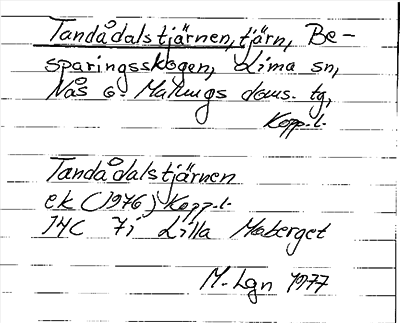 Tandådalstjärnen, tjärn, Be-
sparingsskogen, Lima sn,
Nås o. Malungs doms. tg,
Kopp. l.
Tandådalstjärnen
ek (1976) Kopp. l.
14C 7i Lilla Moberget
M. Lgn 1977